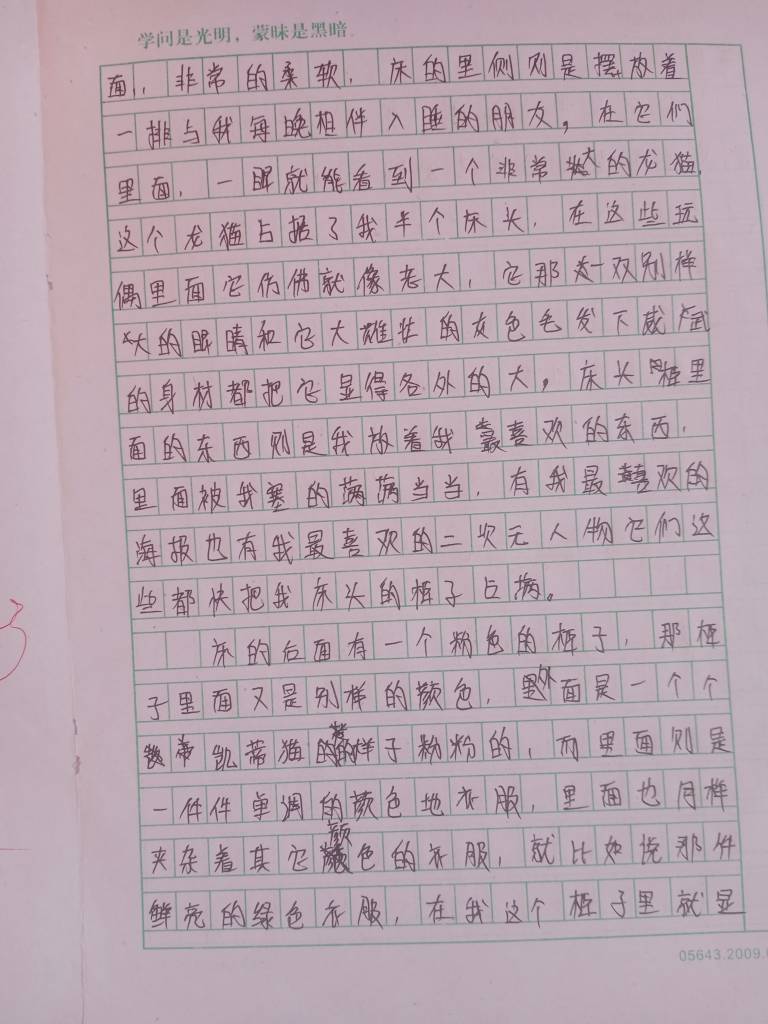 学问是光明，蒙昧是黑暗
面，非常的柔软，床的里侧则是摆放着
一排与我每晚相伴入睡的朋友，在它们
里面，一眼就能看到一个非常大的龙猫，
这个龙猫占据了我半个床头，在这些玩
偶里面它仿佛就像老大，它那一双别样
大的眼睛和它大雄壮的灰色毛发下威武
的身材都把它显得各外的大，床头柜里
面的东西则是我放着我最喜欢的东西，
里面被我塞的满满当当，有我最喜欢的
海报也有我最喜欢的二次元人物它们这
些都快把我床头的柜子占满。
床的后面有一个粉色的柜子，那柜
子里面又是别样的颜色，外面是一个个
凯蒂猫的样子粉粉的，而里面则是
一件件单调的颜色地衣服，里面也同样
夹杂着其它颜色的衣服，就比如说那件
鲜亮的绿色衣服，在我这个柜子里就显
05643.2009.